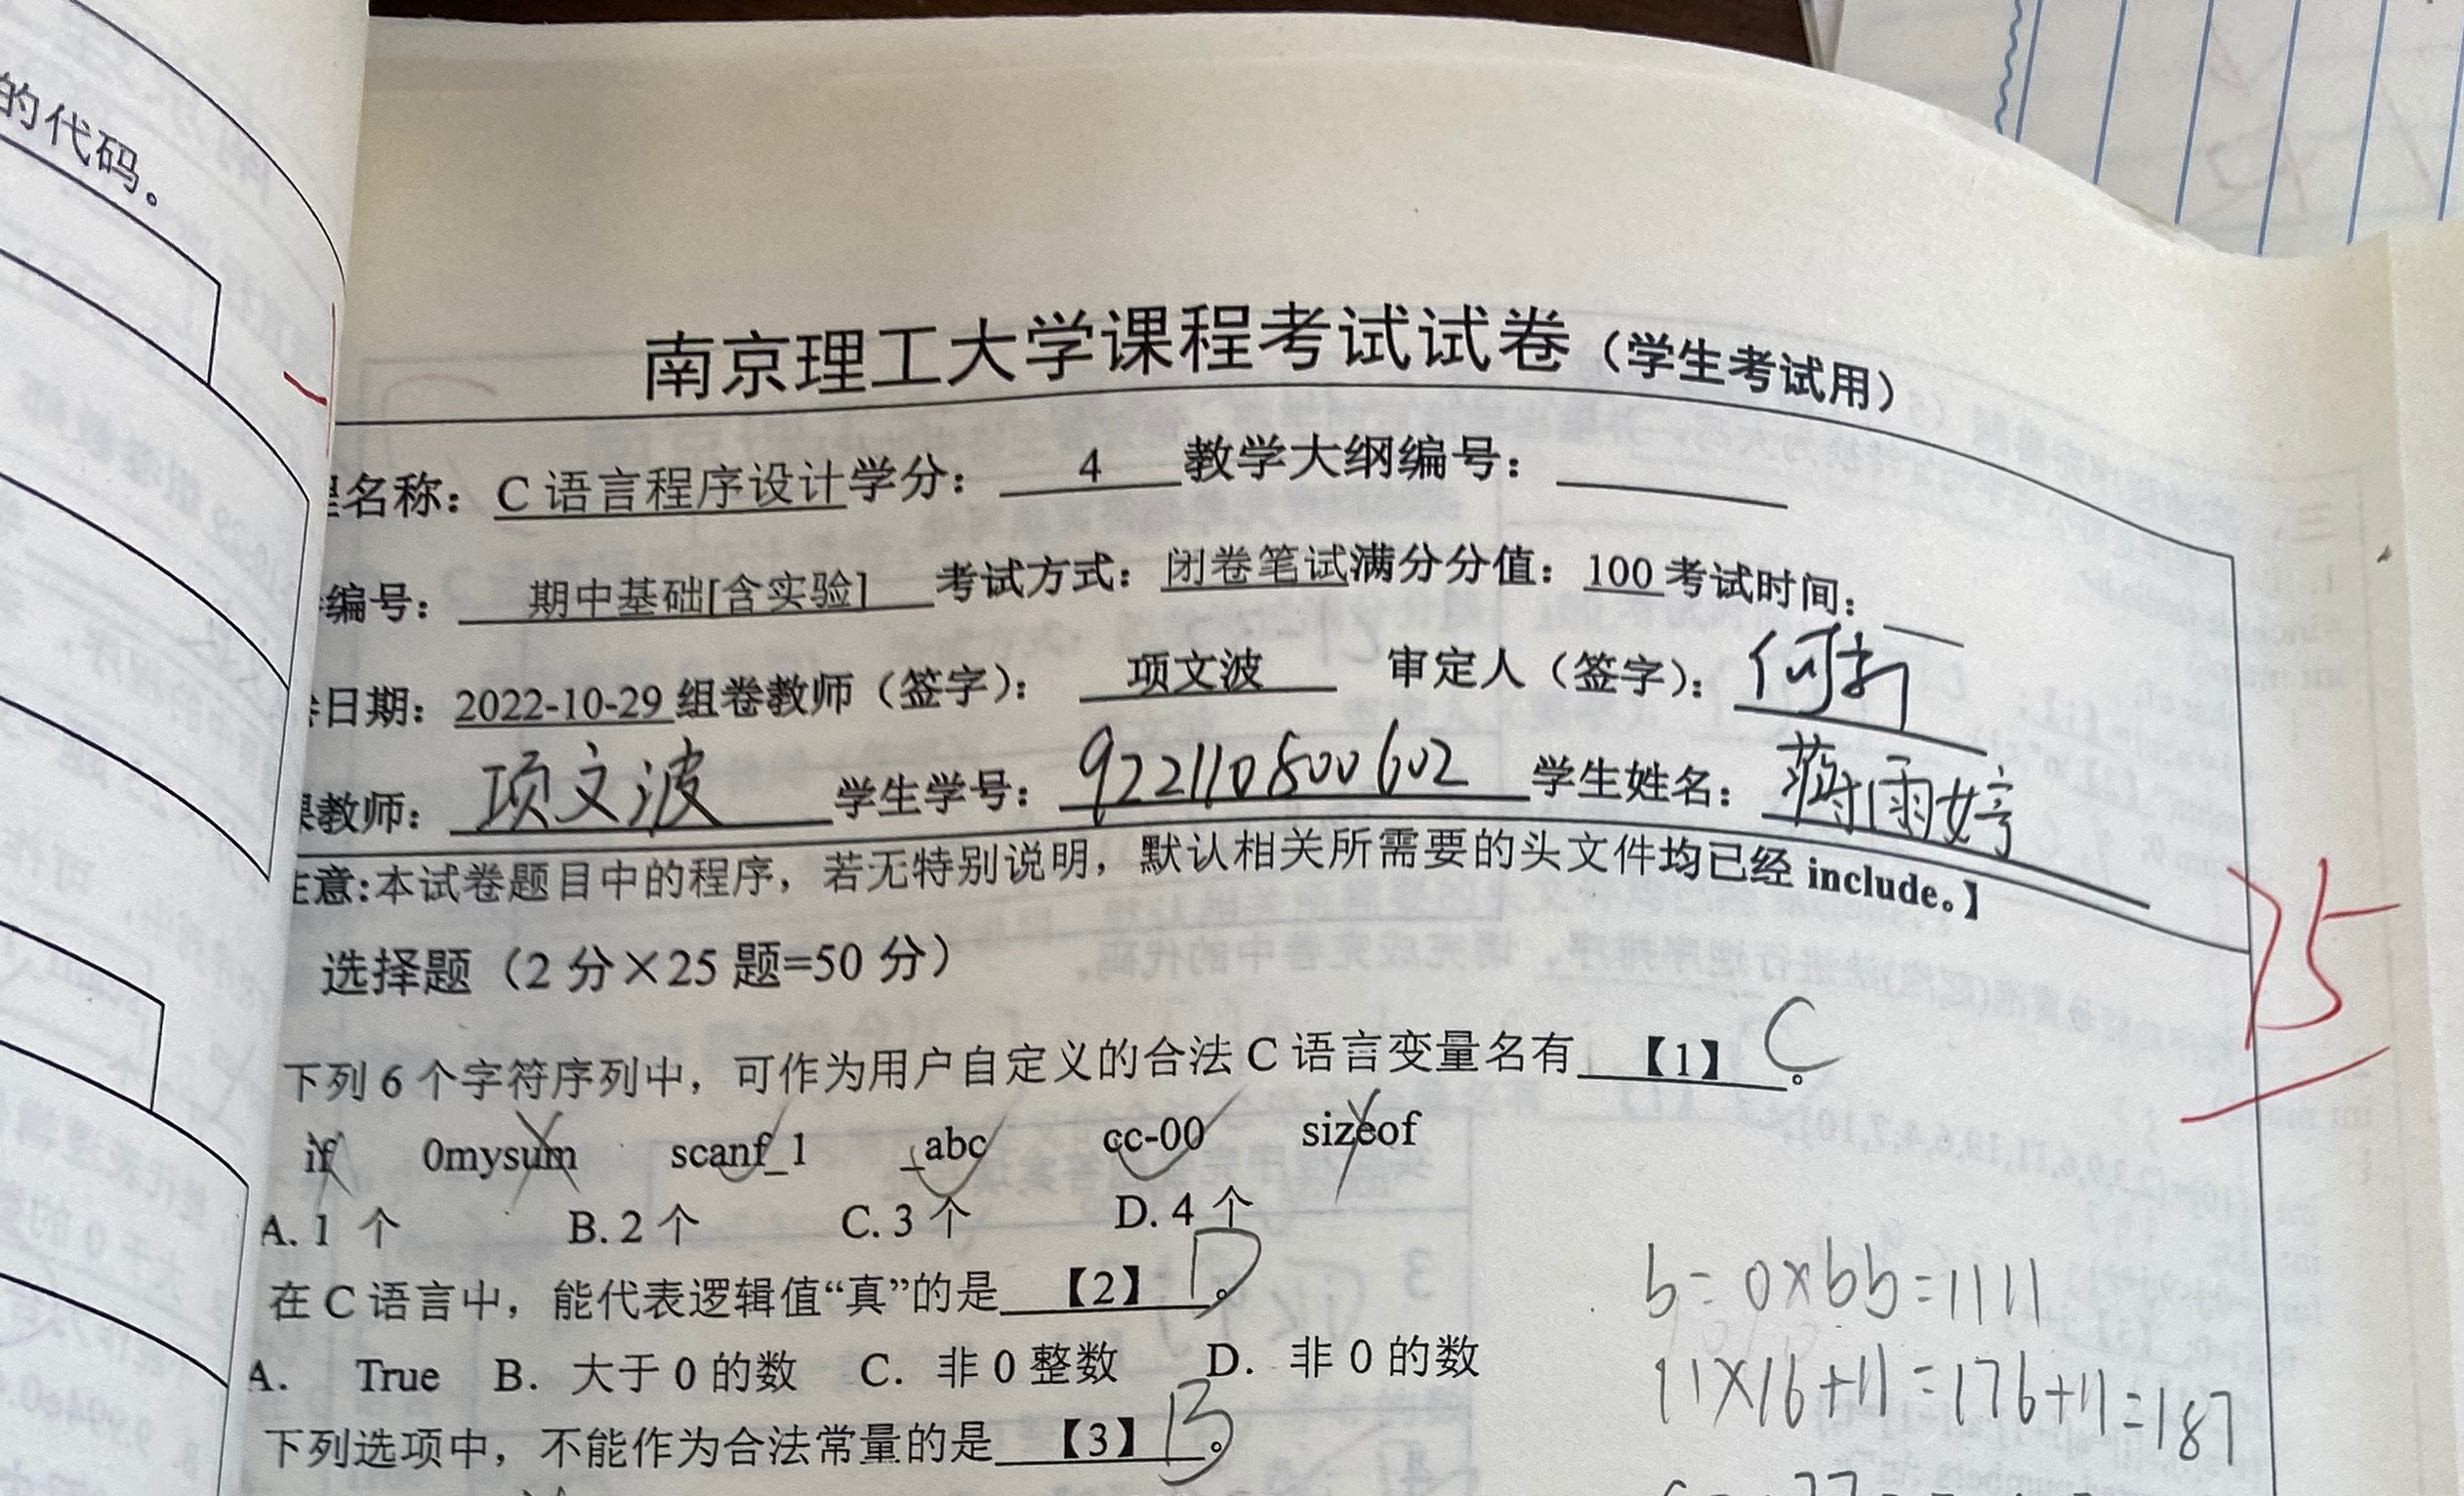 的代码。
南京理工大学课程考试试卷（学生考试用）
名称：C 语言程序设计学分：4 教学大纲编号：
编号：期中基础[含实验] 考试方式：闭卷笔试满分分值：100 考试时间：
日期：2022-10-29 组卷教师（签字）：项文波 审定人（签字）：何新
教师：项文波 学生学号：922110800602 学生姓名：蒋雨婷
意:本试卷题目中的程序，若无特别说明，默认相关所需要的头文件均已经 include。】
75
选择题（2 分×25 题=50 分）
下列 6 个字符序列中，可作为用户自定义的合法 C 语言变量名有【1】C。
if 0mysum scanf_1 _abc cc-00 sizeof
A. 1 个 B. 2 个 C. 3 个 D. 4 个
在 C 语言中，能代表逻辑值“真”的是【2】D。
A. True B. 大于 0 的数 C. 非 0 整数 D. 非 0 的数
下列选项中，不能作为合法常量的是【3】B。
b=0xbb=1111
11×16+11=176+11=187